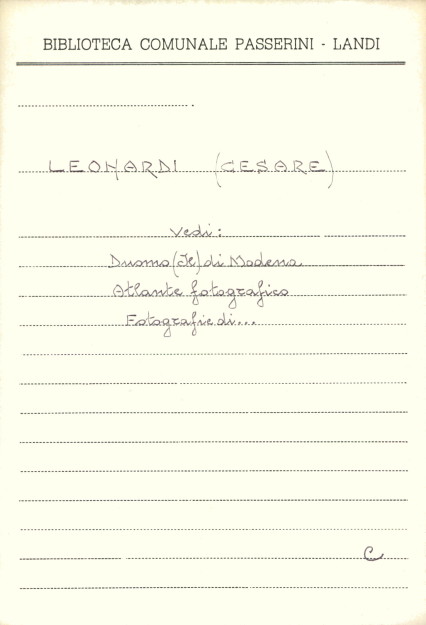 BIBLIOTECA COMUNALE PASSERINI - LANDI
LEONARDI (CESARE)
Vedi:
Duomo (Il) di Modena
Atlante fotografico
Fotografie di...
C